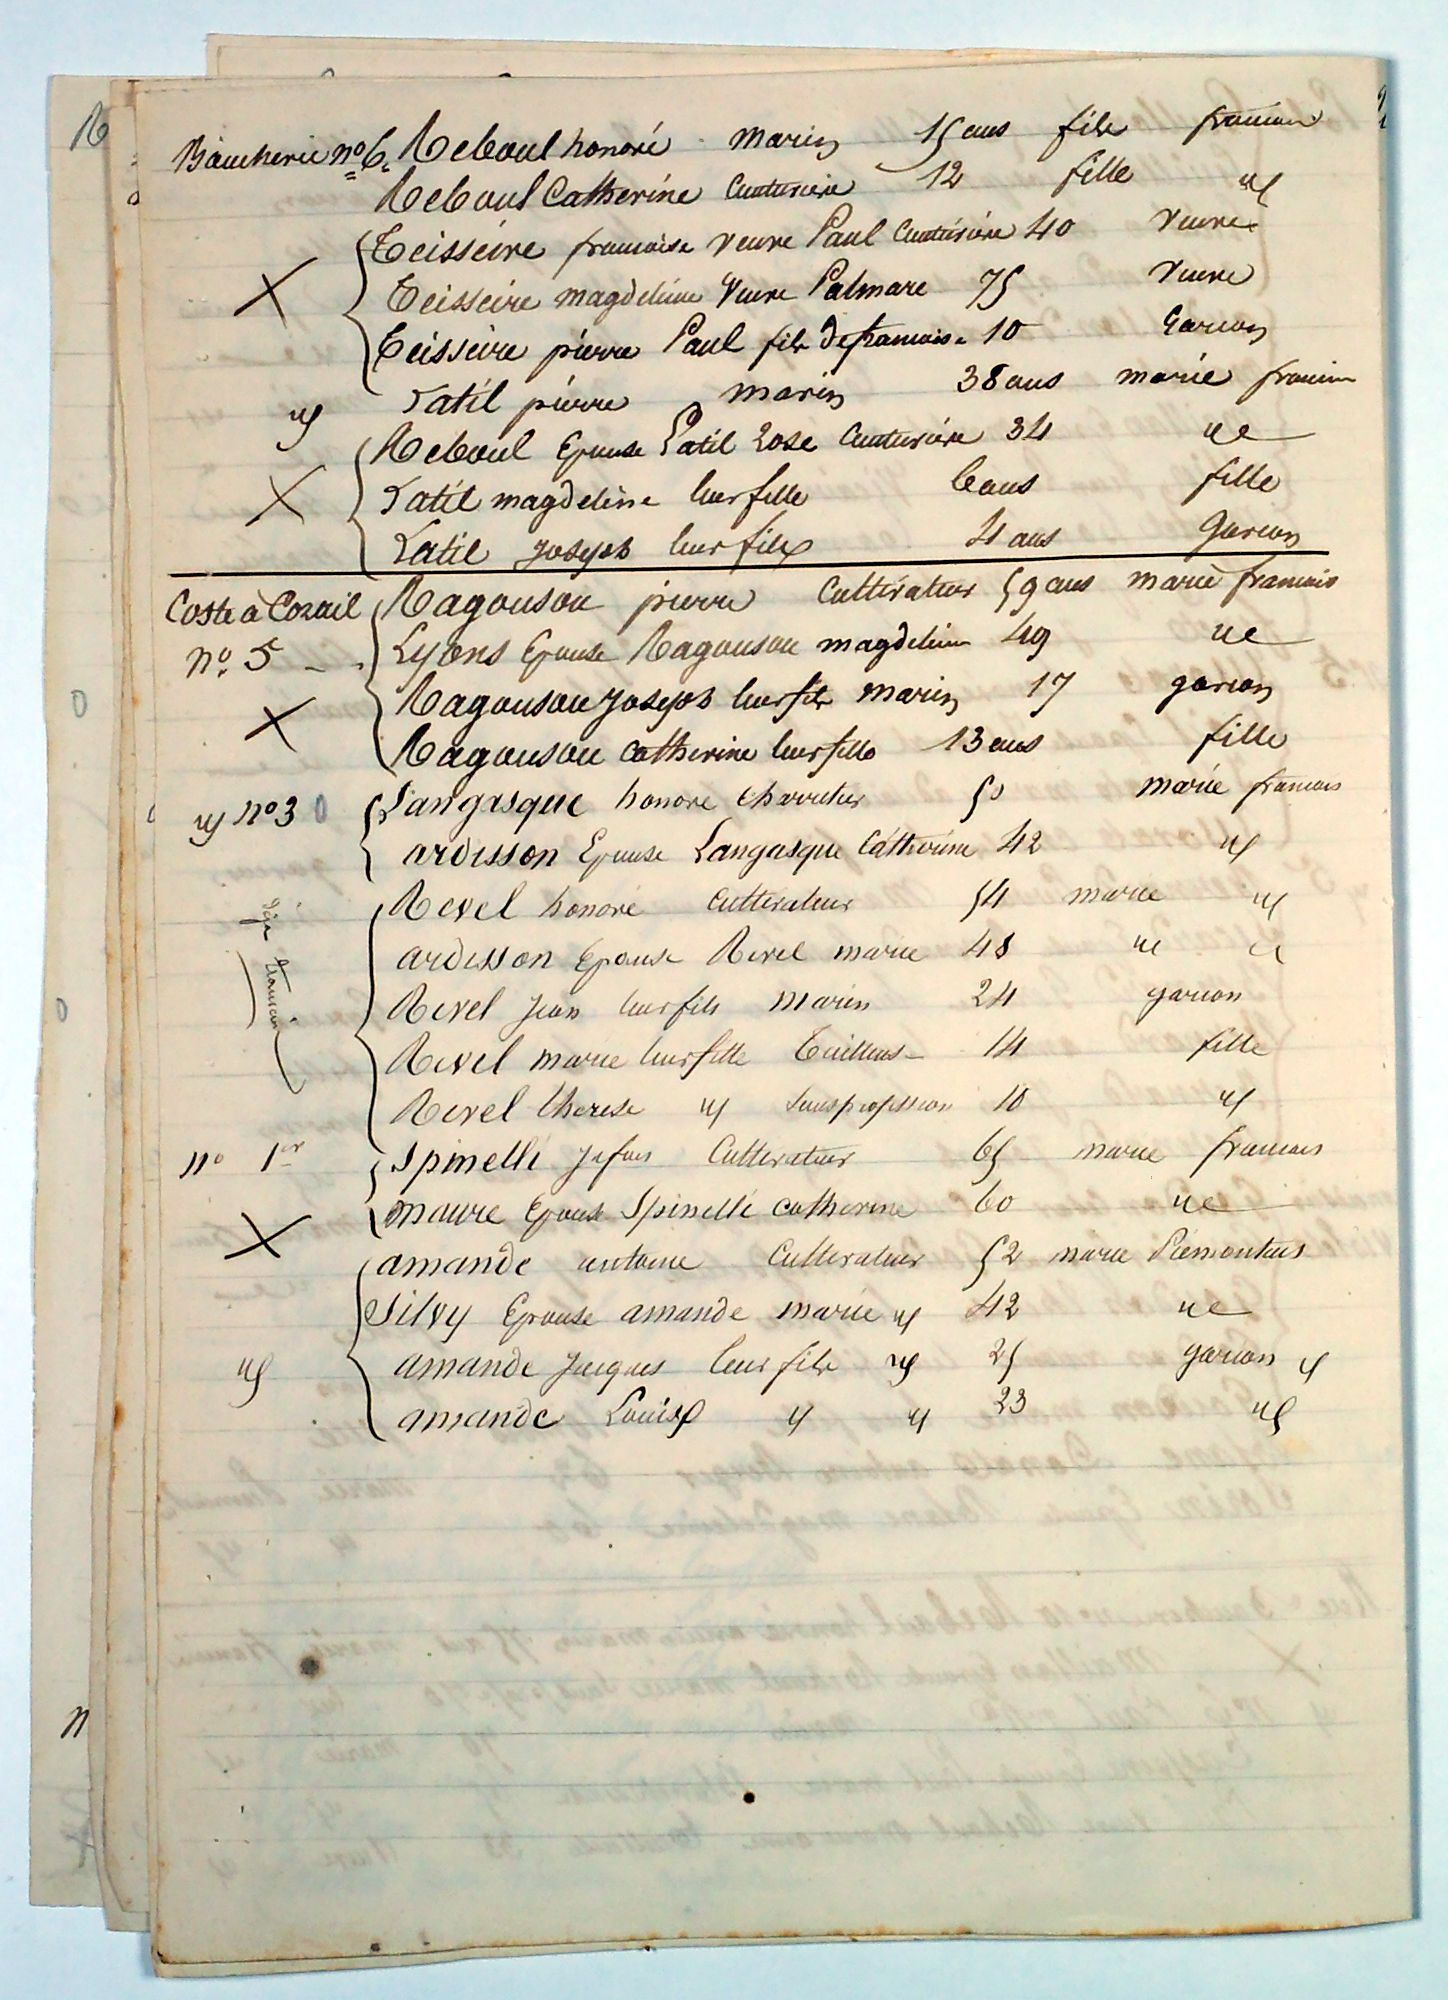 Boucherie no 6. Reboul honoré marin 15 ans fils francais
Reboul Catherine Couturière 12 fille id
Teisseire francoise veuve Paul Couturière 40 veuve
Teisseire magdeleine veuve Palmare 75 veuve
Teisseire pierre Paul fils de francoise 10 Garcon
id Latil pierre marin 38 ans marié francais
Reboul Epouse Latil Rose Couturière 34 ue
Latil magdeleine leur fille 6 ans fille
Latil Joseph leur fils 4 ans Garcon
Coste à Corail Ragousou pierre Cultivateur 59 ans marié francais
no. 5 Lyons Epouse Ragousou magdeleine 49 ue
Ragousou Joseph leur fils marin 17 garcon
Ragousou Catherine leur fille 13 ans fille
id no 3 Langasque honoré charretier 50 marié francais
ardisson Epouse Langasque Catherine 42 id
Revel honoré Cultivateur 54 marié id
déjà
ardisson Epouse Revel marie 48 ue id
Revel Jean leur fils marin 24 garcon
Revel marie leur fille Tailleuse 14 fille
Revel therese id sans profession 10 id
no 1er Spinelli Cultivateur 65 marié francais
maure Epouse Spinelli Catherine 60 ue
amande antoine Cultivateur 52 marié Piemontais
Silvy Epouse amande marie id 42 ue
id amande Jacques leur fils id 25 garcon id
amande Louis id id 23 id